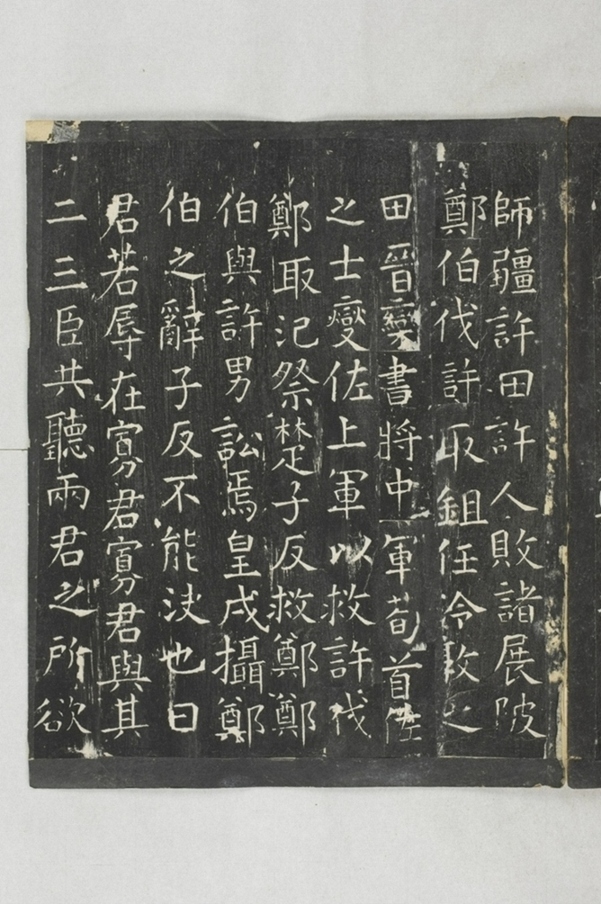 師疆許田許人敗諸展陂
鄭伯伐許取鉏任冷敦之
田晉欒書將中軍荀首佐
之士燮佐上軍以救許伐
鄭取汜祭楚子反救鄭鄭
伯與許男訟焉皇戌攝鄭
伯之辭子反不能決也曰
君若辱在寡君寡君與其
二三臣共聽兩君之所欲